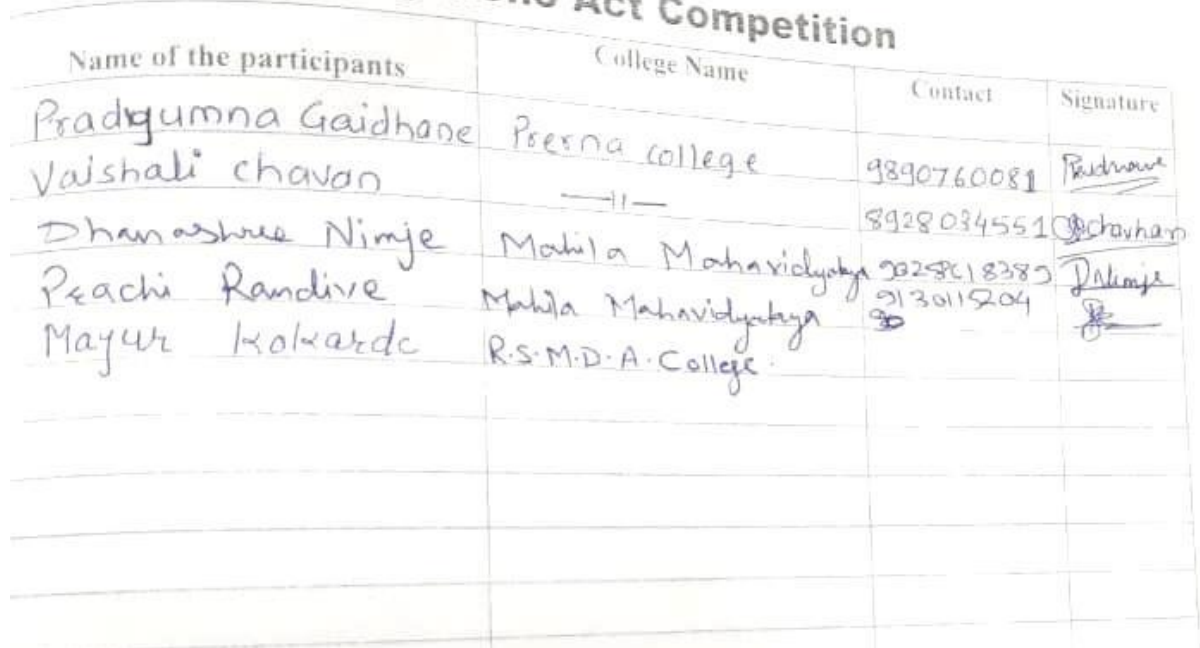 Act Competition
Name of the participants College Name Contact Signature
Pradyumna Gaidhane Prerna college 9890760081
Vaishali chavan —11— 8928034551 chavhan
Dhanashree Nimje Mahila Mahavidyalaya
Prachi Randive Mahila Mahavidyalaya 9130115204
Mayur Kokarde R.S.M.D.A. College.